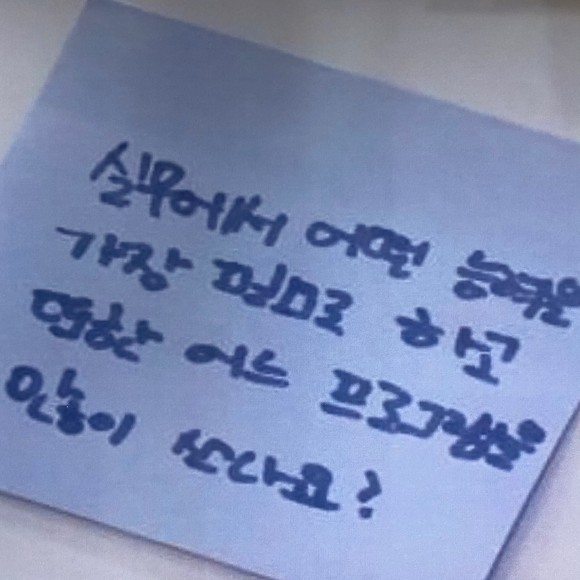 실무에서 어떤 능력을
가장 필요로 하고
또한 어느 프로그램을
많이 쓰나요?